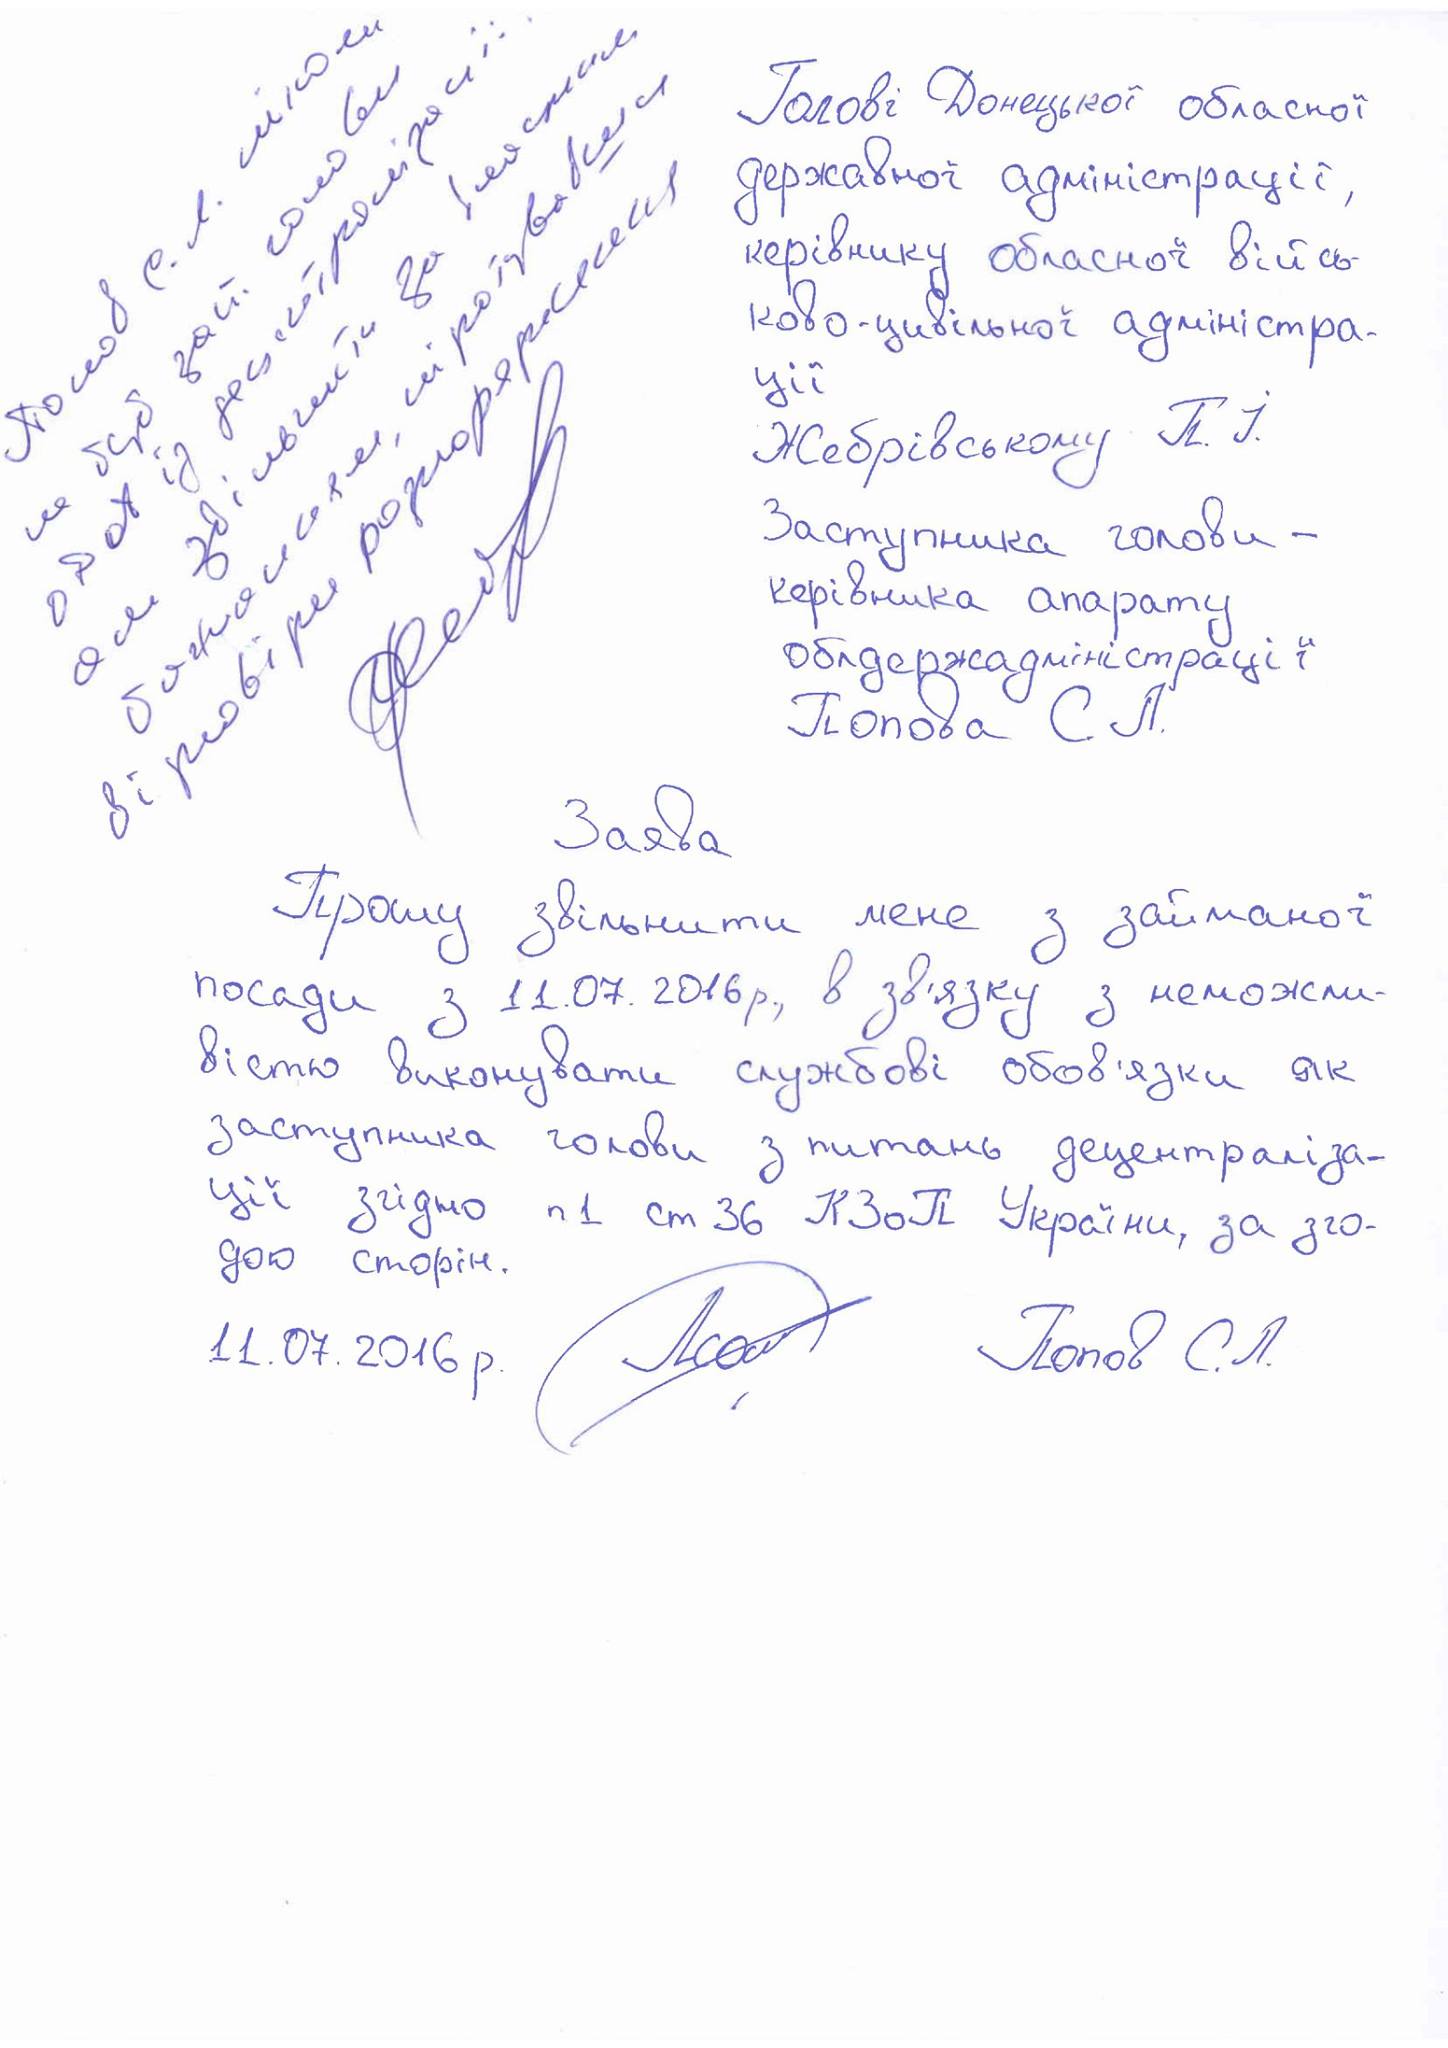 Попов С. Л. ніколи
не був заст. голови
ОДА із децентралізації.
за власним
бажанням, ні
розпорядження
Голові Донецької обласної
державної адміністрації,
керівнику обласної війсь-
ково-цивільної адміністра-
ції
Жебрівському П. І.
Заступника голови –
керівника апарату
облдержадміністрації
Попова С Л.
Заява
Прошу звільнити мене з займаної
посади з 11.07.2016р., в зв'язку з неможли-
вістю виконувати службові обов'язки як
заступника голови з питань децентраліза-
ції згідно п1 ст 36 КЗоП України, за зго-
дою сторін.
11.07.2016р. Попов С.Л.